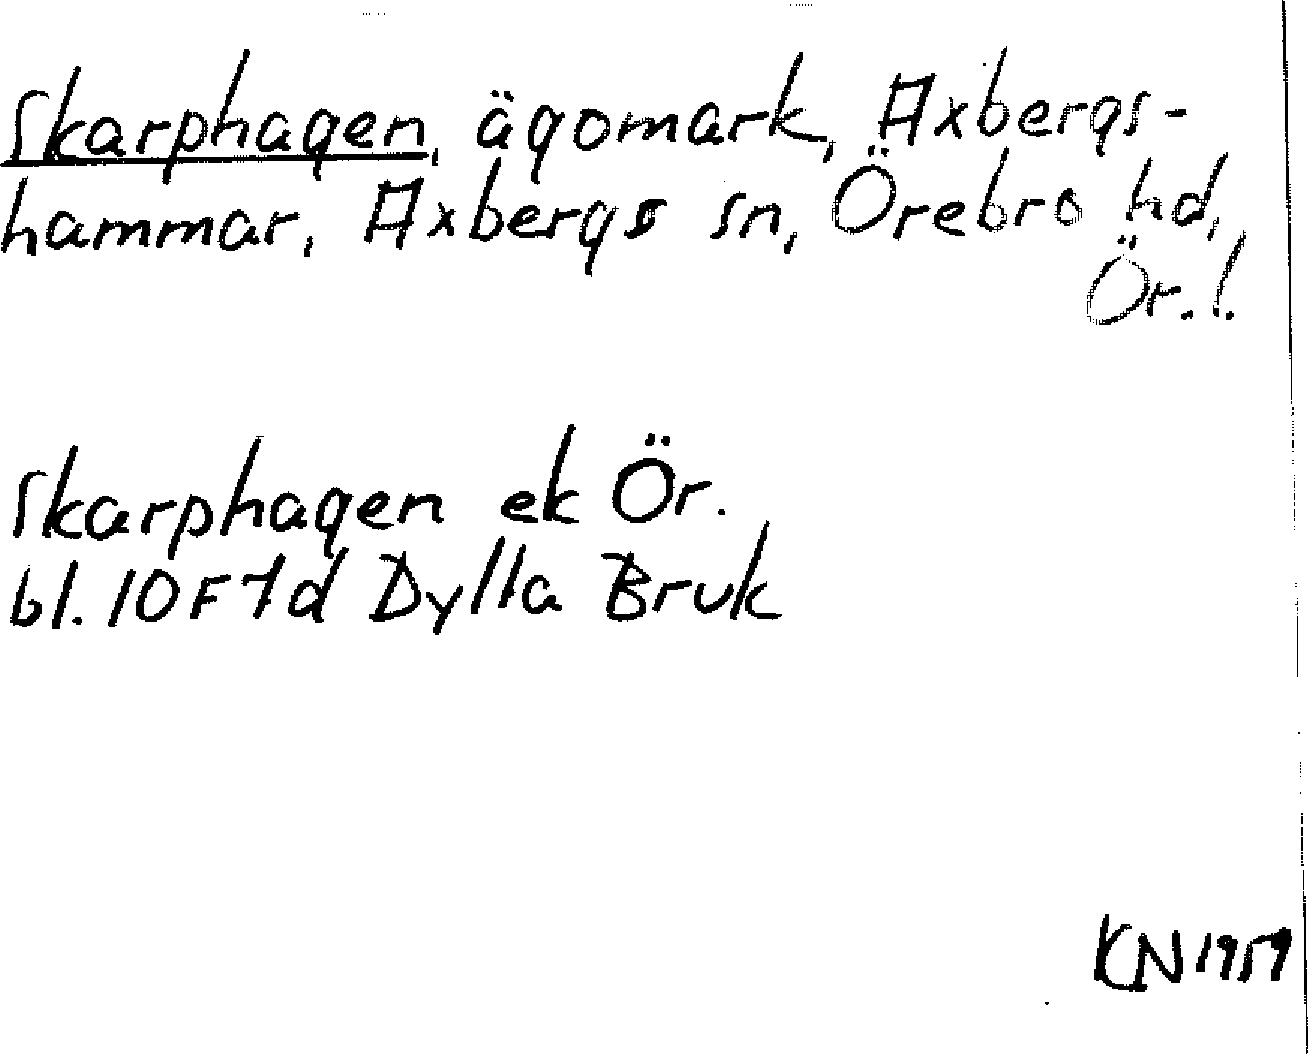 Skarphagen, ägomark, Axbergs-
hammar, Axbergs sn, Örebro hd,
Ör. l.
Skarphagen ek Ör.
bl. 10F7d Dylta Bruk
KN 1959